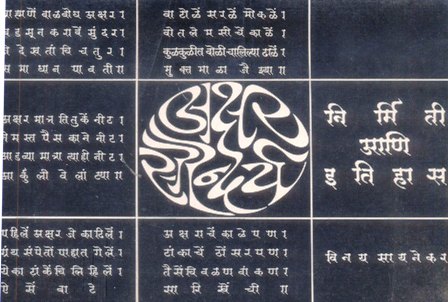 ब्राह्मणें बाळबोध अक्षर।
घडसून करावें सुंदर।
जें देखतांचि चतुर।
समाधान पावती॥
वाटोळें सरळें मोकळें।
वोतलें मसीचें काळें।
कुळकुळीत वोळी चालिल्या ढाळें।
मुक्तमाळा जैशा॥
अक्षरमात्र तितुकें नीट।
नेमस्त पैस काने नीट।
आडव्या मात्रा त्याही नीट।
आर्कुलीं वेलांट्या॥
अक्षर
सौन्दर्य
निर्मिती
आणि
इतिहास
पहिलें अक्षर जें काढिलें।
ग्रंथ संपेतों पाहात गेलें।
येका टांकेंचि लिहिलें।
ऐसें वाटे
अक्षराचें काळेपण।
टांकाचें ठोंसरपण।
तैसेंचि वळण वांकण।
सारिखेंची॥
विनय सायनेकर